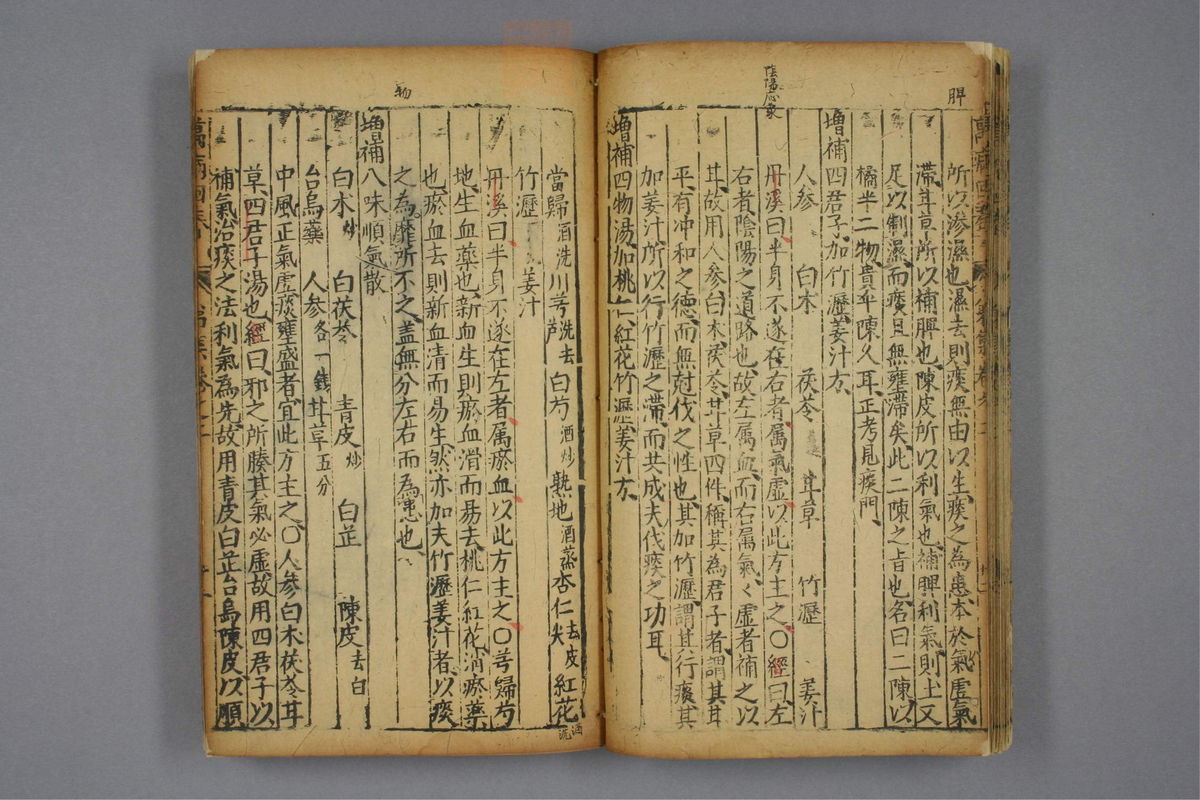 脾
所以滲濕也、濕去則痰無由以生、痰之為患本於氣虛氣
滯、甘草所以補脾也、陳皮所以利氣也、補脾利氣則土又
足以制濕而痰且無壅滯矣、此二陳之旨也、名曰二陳以
橘半二物貴年陳久耳、正考見痰門、
增補四君子加竹瀝姜汁方、
人參 白朮 茯苓 甘草 竹瀝 姜汁
丹溪曰半身不遂在右者屬氣虛以此方主之〇經曰左
右者陰陽之道路也、故左屬血而右屬氣〻虛者補之以
甘、故用人參白朮茯苓甘草四件、稱其為君子者、謂其甘
平、有冲和之德而無尅伐之性也、其加竹瀝、謂其行痰其
加姜汁所以行竹瀝之滯、而共成夫伐痰之功耳、
增補四物湯加桃仁紅花竹瀝姜汁方、
物
當歸酒洗 川芎洗去芦 白芍酒炒 熟地酒蒸 杏仁去皮尖 紅花酒洗
竹瀝 姜汁
丹溪曰半身不遂在左者屬瘀血以此方主之〇芎歸芍
地、生血藥也、新血生則瘀血滑而易去、桃仁紅花消瘀藥
也、瘀血去則新血清而易生、然亦加夫竹瀝姜汁者、以痰
之為靡所不之、盖無分左右而為患也、
增補八味順氣散
白朮炒 白茯苓 青皮炒 白芷 陳皮去白
台烏藥 人參各一錢 甘草五分
中風正氣虛痰壅盛者、宜此方主之、〇人參白朮茯苓甘
草、四君子湯也、經曰、邪之所腠其氣必虛故用四君子以
補氣、治痰之法利氣為先、故用青皮白芷台烏陳皮、以順